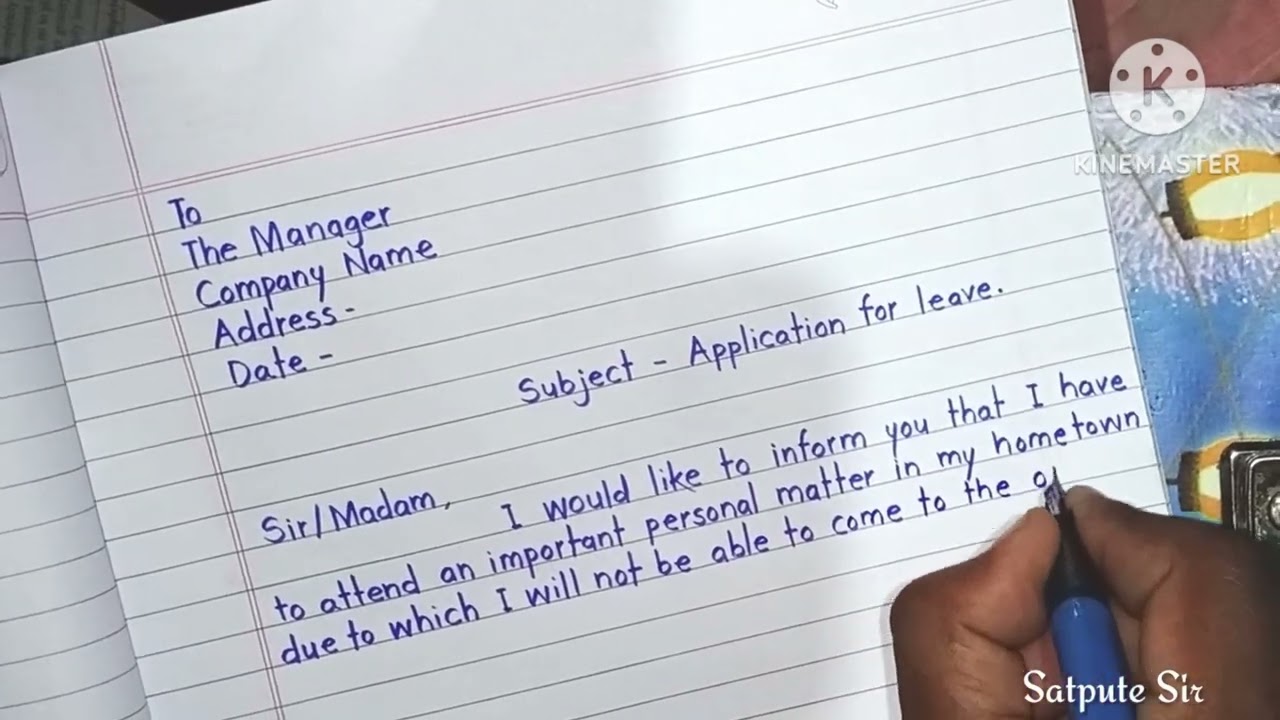 To
The Manager
Company Name
Address-
Date -
Subject - Application for leave.
Sir/Madam,
I would like to inform you that I have
to attend an important personal matter in my hometown
due to which I will not be able to come to the
K
KINEMASTER
Satpute Sir